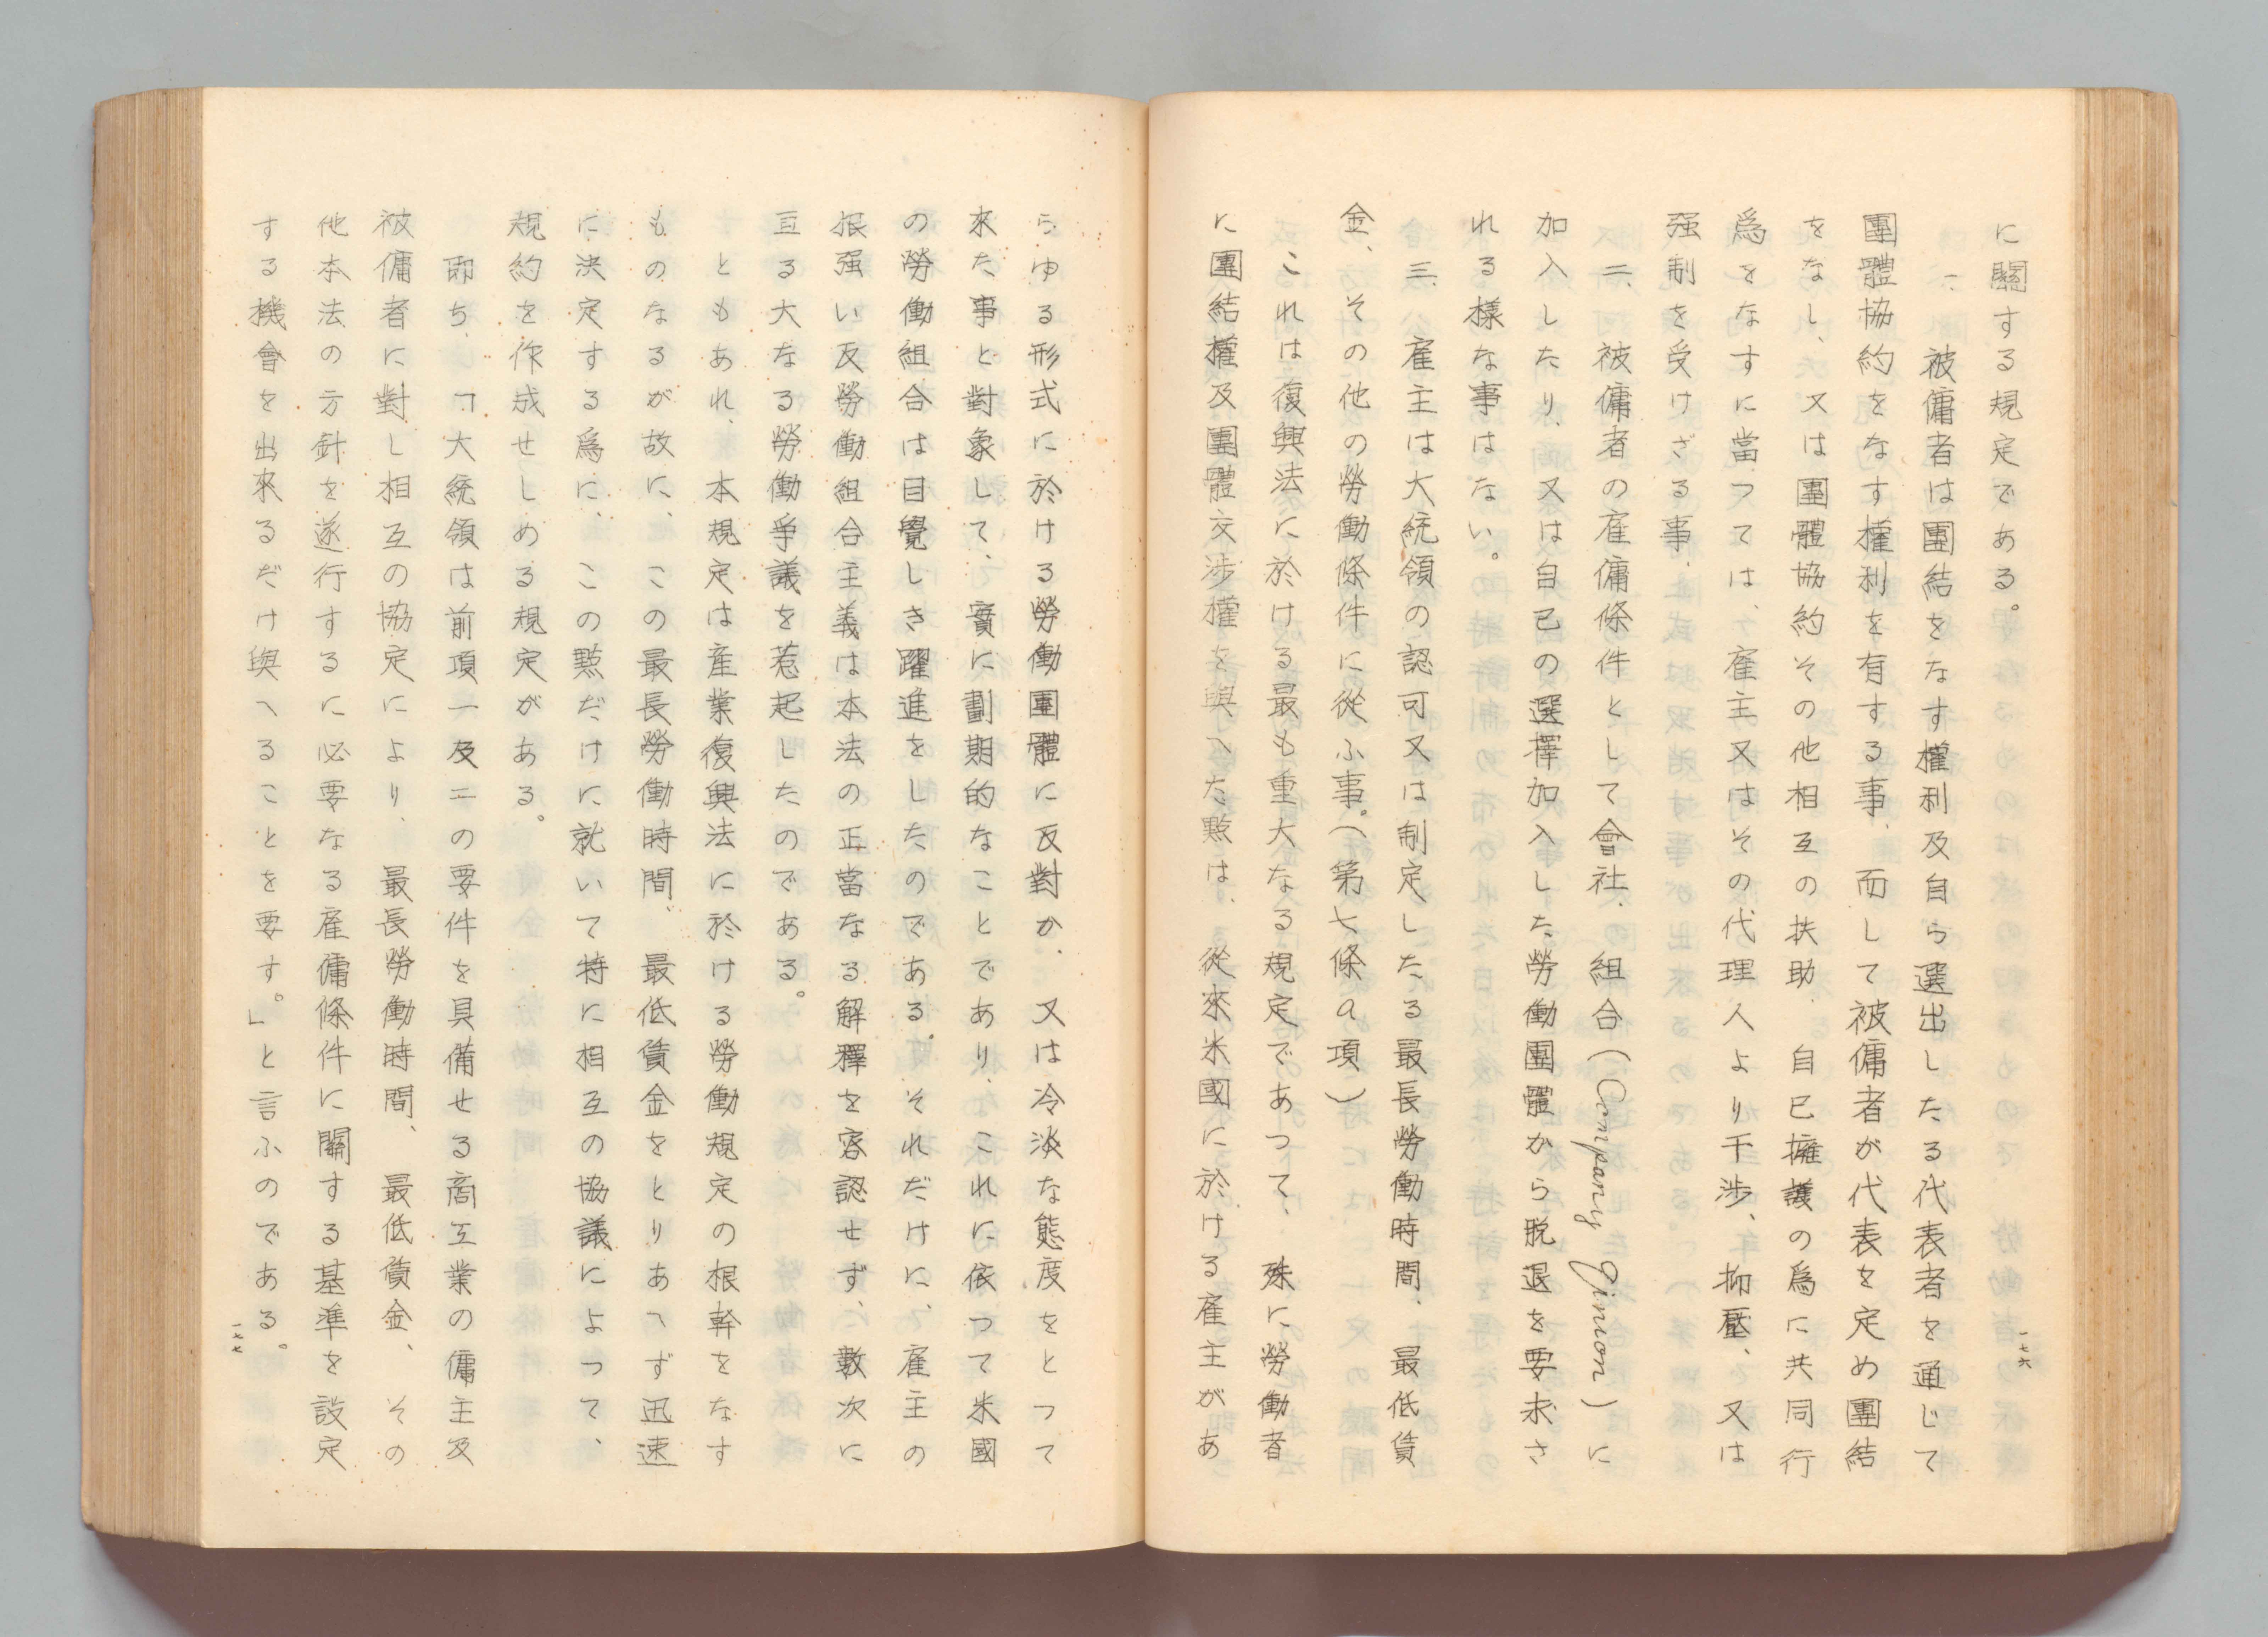 に關する規定である。
一、被傭者は團結をなす權利及自ら選出したる代表者を通じて
團體協約をなす權利を有する事、而して被傭者が代表を定め團結
をなし、又は團體協約その他相互の扶助、自己擁護の爲に共同行
爲をなすに當つては、雇主又はその代理人より干渉、抑壓、又は
强制を受けざる事、
二、被傭者の雇傭條件として會社、組合(Company Union)に
加入したり、又は自己の選擇加入した勞働團體から脫退を要求さ
れる樣な事はない。
三、雇主は大統領の認可又は制定したる最長勞働時間、最低賃
金、その他の勞働條件に從ふ事。(第七條a項)
これは復興法に於ける最も重大なる規定であつて、殊に勞働者
に團結權及團體交涉權を與へた點は、從來米國に於ける雇主があ
一七六
らゆる形式に於ける勞働團體に反對か、又は冷淡な態度をとつて
來た事と對象して、實に劃期的なことであり、これに依つて米國
の勞働組合は目覺しき躍進をしたのである。それだけに、雇主の
根强い反勞働組合主義は本法の正當なる解釋を容認せず、數次に
亘る大なる勞働爭議を惹起したのである。
ともあれ、本規定は産業復興法に於ける勞働規定の根幹をなす
ものなるが故に、この最長勞働時間、最低賃金をとりあへず迅速
に決定する爲に、この點だけに就いて特に相互の協議によつて、
規約を作成せしめる規定がある。
卽ち、「大統領は前項一及二の要件を具備せる商工業の傭主及
被傭者に對し相互の協定により、最長勞働時間、最低賃金、その
他本法の方針を遂行するに必要なる雇傭條件に關する基準を設定
する機會を出來るだけ與へることを要す。」と言ふのである。
一七七